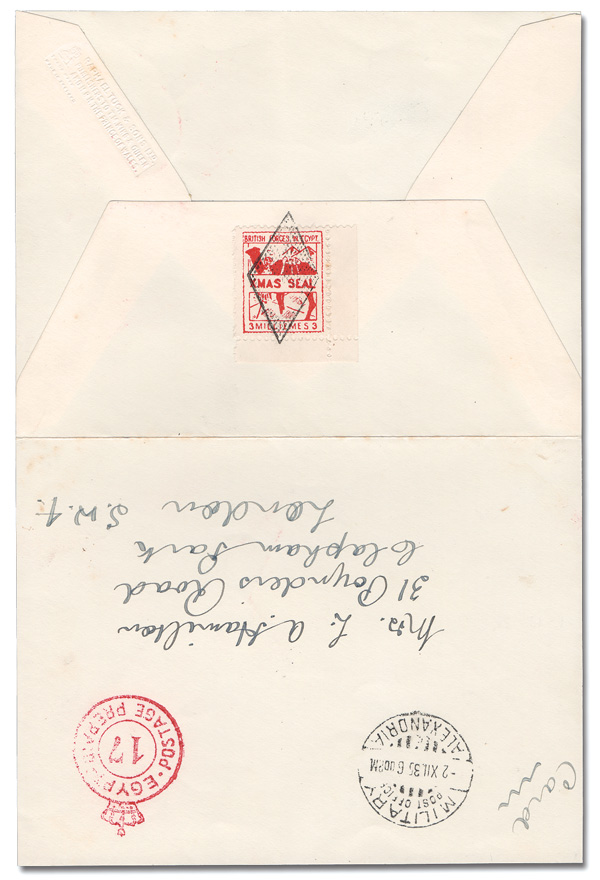 BRITISH FORCES IN EGYPT
XMAS SEAL
3 MILLIEMES 3
Mrs. L. A. Hamilton
31 Poynders Road
Clapham Park
London S.W.4.
POSTAGE PREPAID
17
EGYPT
MILITARY
POST OFFICE
-2 XII.35 6 00PM
ALEXANDRIA
Card